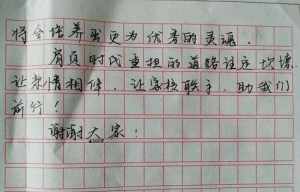 将会培养出更为优秀的灵魂。
肩负时代重担的道路注定坎坷，
让热情相伴，让家校联手，助我们
前行！
谢谢大家！